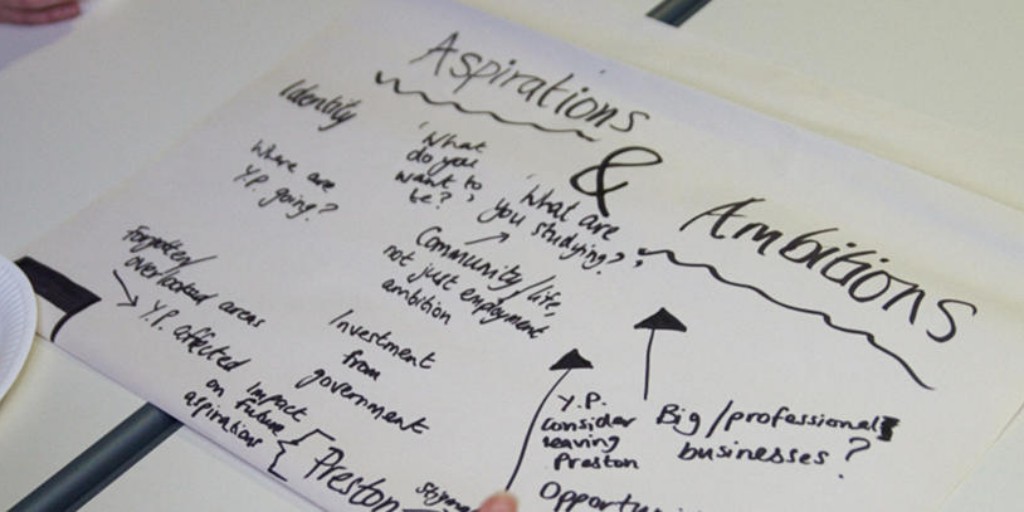 Aspirations
&
Ambitions
Identity
Where are
Y.P. going?
'What
do you
want to
be?'
'What are
you studying?'
Community/life,
not just employment
ambition
Forgotten/
overlooked areas
Y.P. affected
Investment
from
government
Impact
on future
aspirations
Preston
Y.P.
consider
leaving
Preston
Big/professional
businesses?